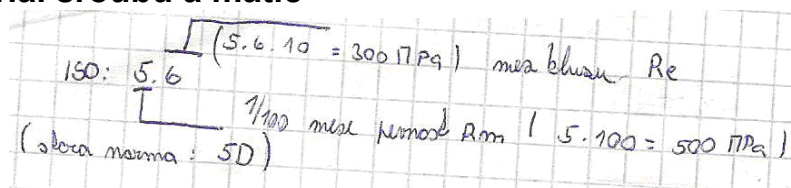 (5.6.10 = 300 MPa) mez kluzu Re
ISO: 5.6
1/100 mez pevnosti Rm ( 5.100 = 500 MPa )
(stará norma : 5D)